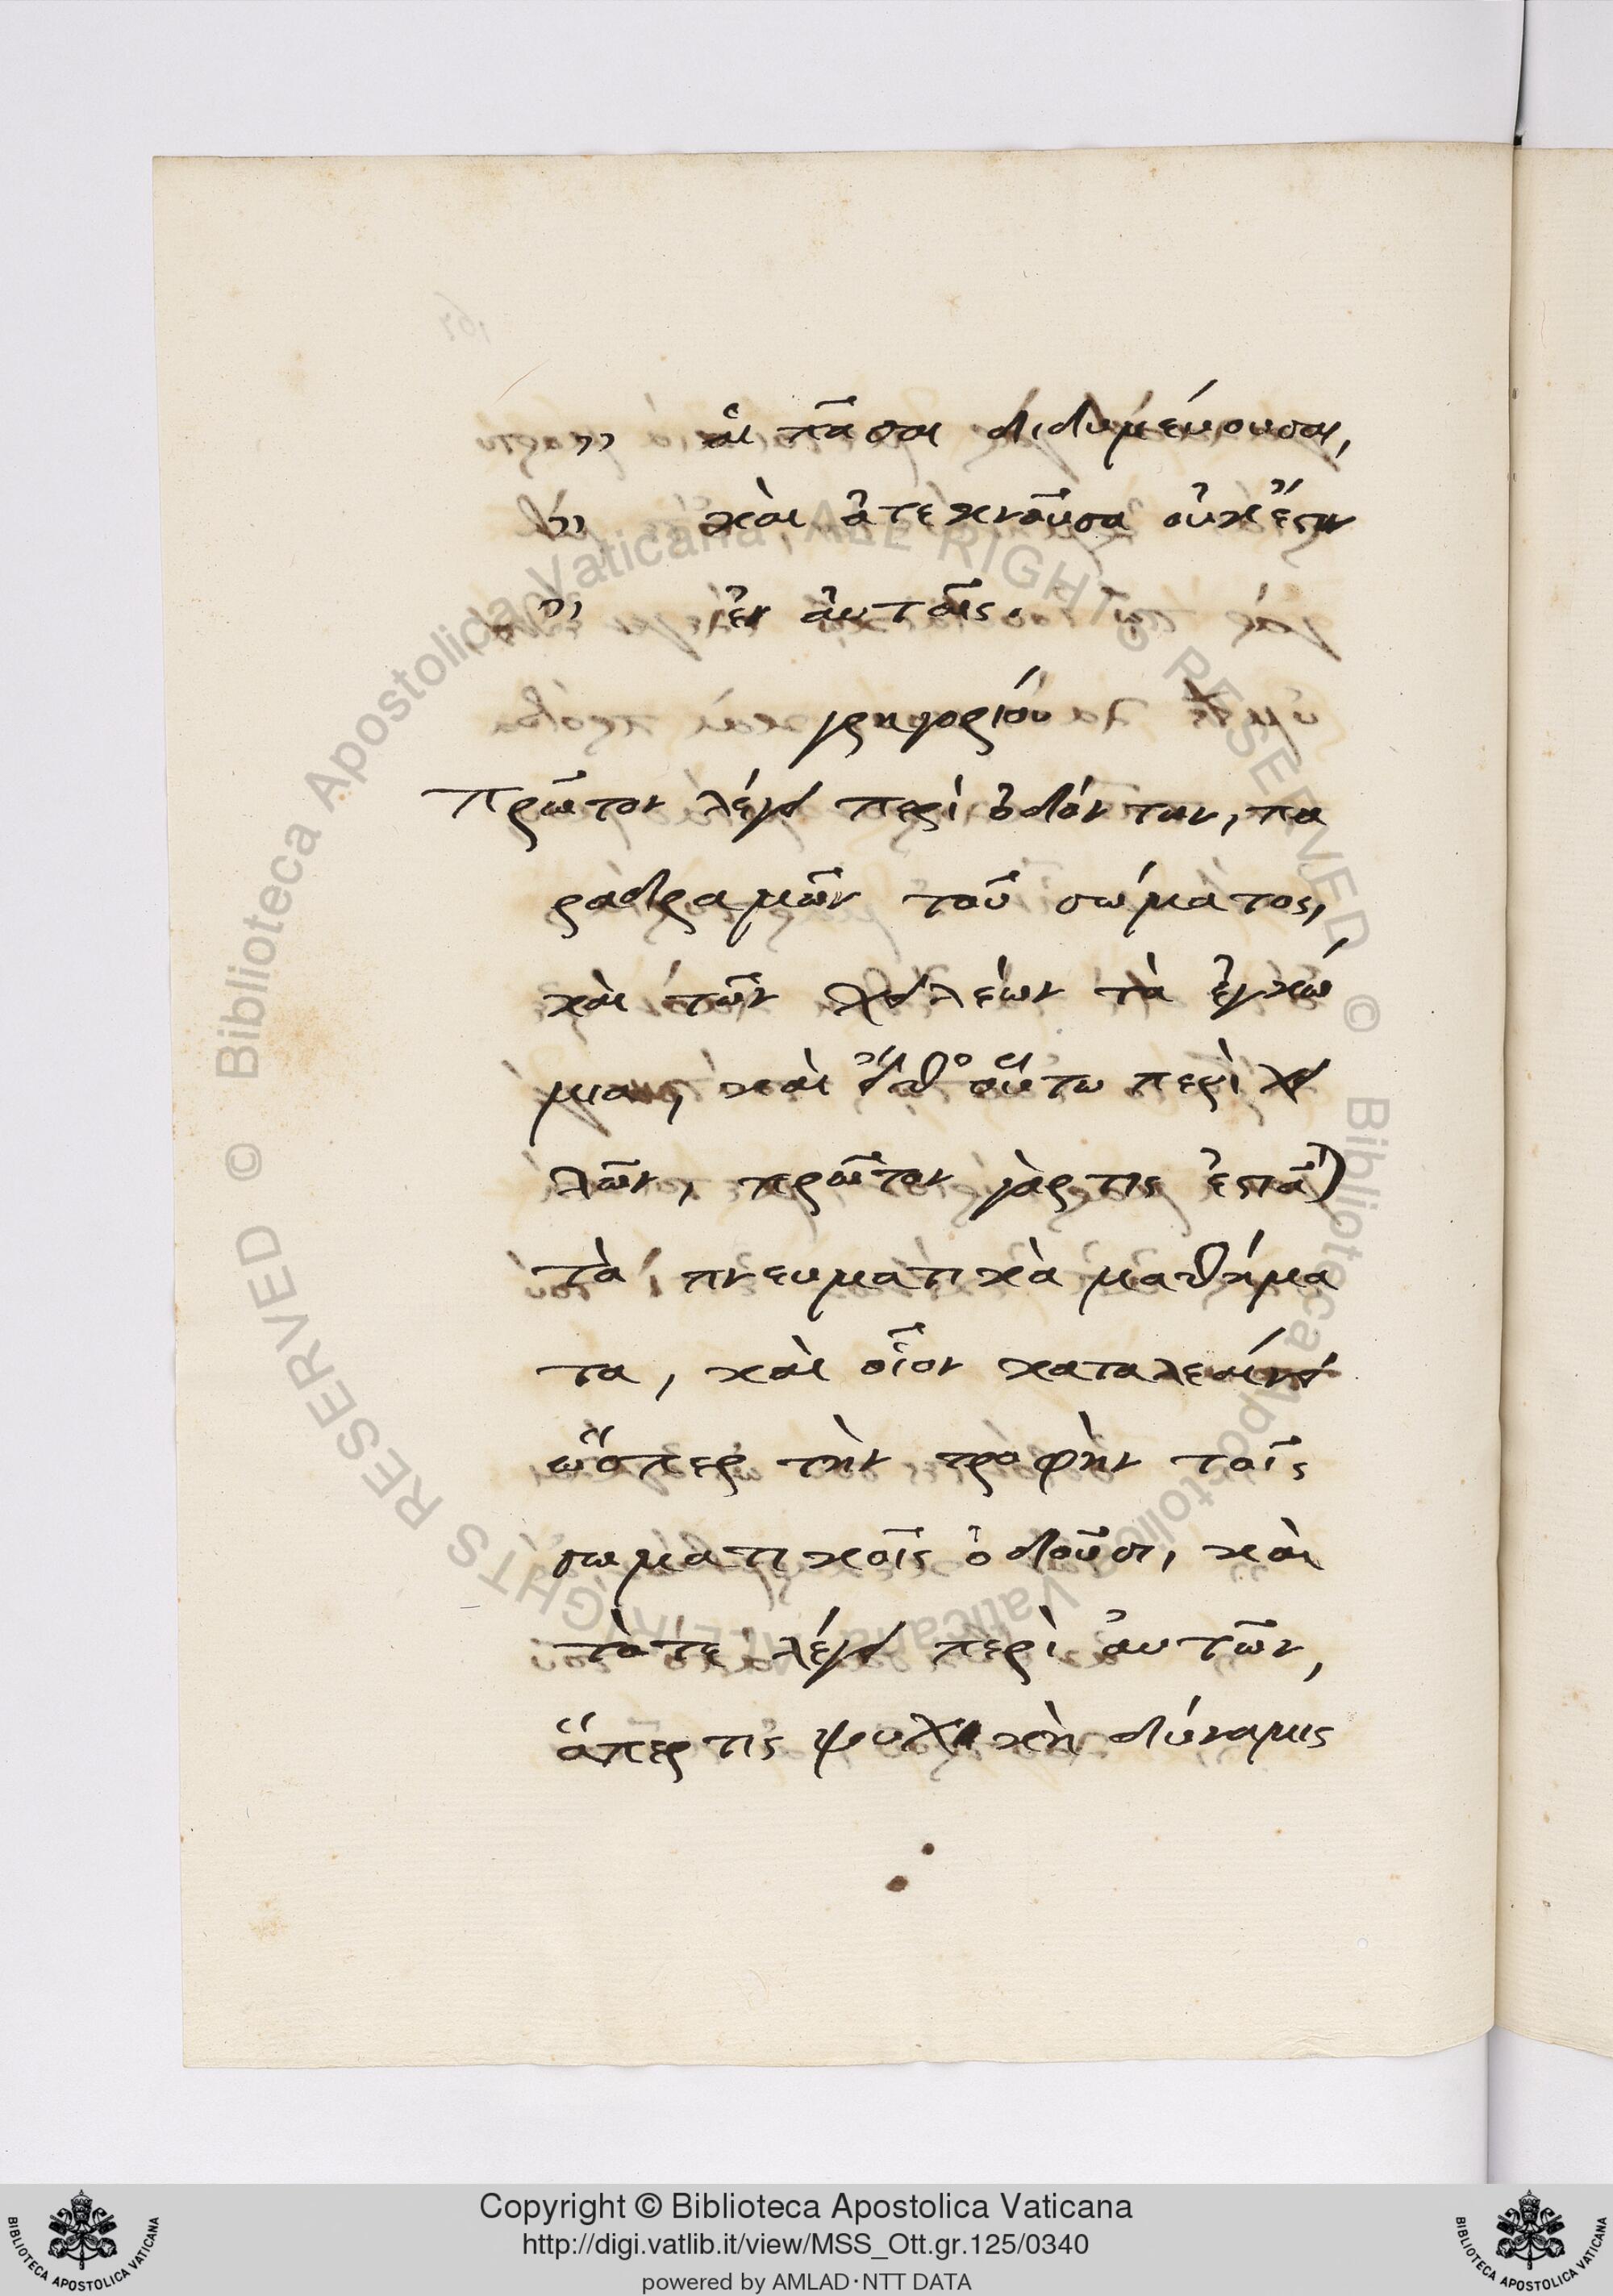 ›› αἱ πᾶσαι διδυμεύουσαι,
›› καὶ ἀτεκνοῦσα οὐκ ἔστιν
›› ἐν αὐτοῖς.
γρηγορίου
Πρῶτον λέγει περὶ ὀδόντων, πα
ραδραμὼν τοῦ σώματος,
καὶ τῶν χειλέων τὰ ἐγκώ
μια, καὶ εἶθ' οὕτω περὶ χει
λῶν, πρῶτον γάρ τις ἐσπᾶ)
τὰ πνευματικὰ μαθήμα
τα, καὶ οἷον καταλεαίνει
ὥσπερ τὴν τροφὴν τοῖς
σωματικοῖς ὀδοῦσι, καὶ
τότε λέγει περὶ αὐτῶν,
ἅπερ τις ψυχικὴ δύναμις
Copyright © Biblioteca Apostolica Vaticana
http://digi.vatlib.it/view/MSS_Ott.gr.125/0340
powered by AMLAD·NTT DATA
BIBLIOTECA APOSTOLICA VATICANA
BIBLIOTECA APOSTOLICA VATICANA
© Biblioteca Apostolica Vaticana, ALL RIGHTS RESERVED
© Biblioteca Apostolica Vaticana, ALL RIGHTS RESERVED